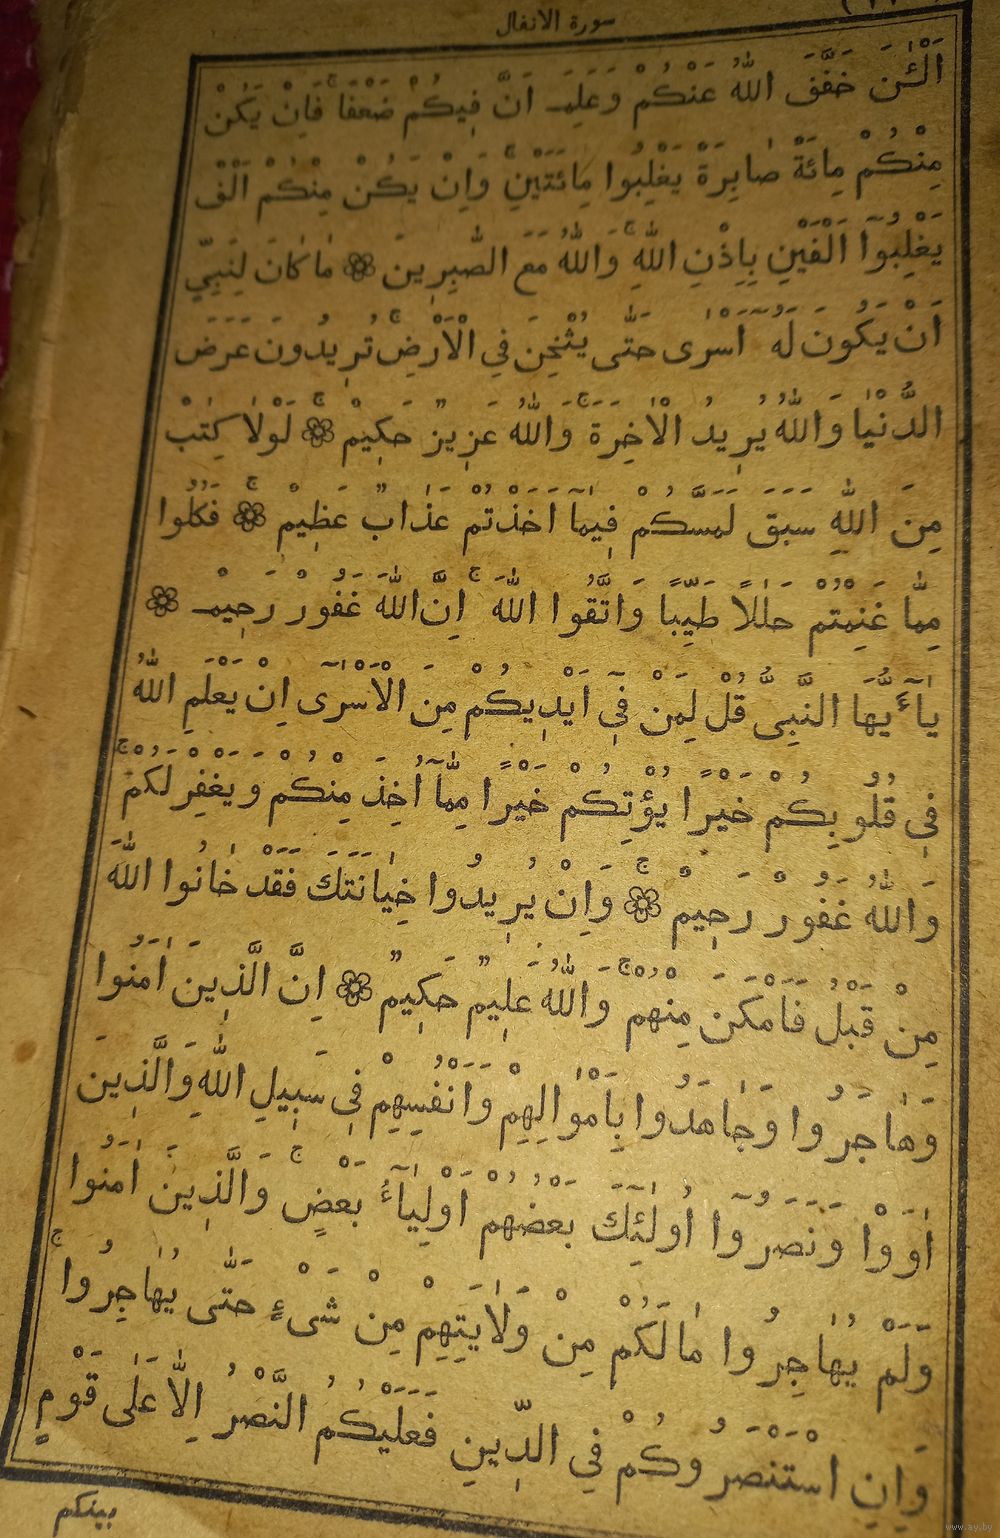 سورة الانفال
اَلْـٰٔنَ خَفَّفَ اللّٰهُ عَنْكُمْ وَعَلِمَ اَنَّ فِيكُمْ ضَعْفًاۚ فَاِنْ يَكُنْ
مِنْكُمْ مِائَةٌ صَابِرَةٌ يَغْلِبُوا مِائَتَيْنِۚ وَاِنْ يَكُنْ مِنْكُمْ اَلْفٌ
يَغْلِبُوٓا اَلْفَيْنِ بِاِذْنِ اللّٰهِۚ وَاللّٰهُ مَعَ الصَّٰبِرِينَ ۞ مَا كَانَ لِنَبِيٍّ
اَنْ يَكُونَ لَهُٓ اَسْرٰى حَتّٰى يُثْخِنَ فِي الْاَرْضِۚ تُرِيدُونَ عَرَضَ
الدُّنْيَا وَاللّٰهُ يُرِيدُ الْاٰخِرَةَۚ وَاللّٰهُ عَزِيزٌ حَكِيمٌۚ ۞ لَوْلَا كِتٰبٌ
مِنَ اللّٰهِ سَبَقَ لَمَسَّكُمْ فِيمَآ اَخَذْتُمْ عَذَابٌ عَظِيمٌۚ ۞ فَكُلُوا
مِمَّا غَنِمْتُمْ حَلٰلًا طَيِّبًا وَاتَّقُوا اللّٰهَۚ اِنَّ اللّٰهَ غَفُورٌ رَحِيمٌ ۞
يَآ اَيُّهَا النَّبِيُّ قُلْ لِمَنْ فِيٓ اَيْدِيكُمْ مِنَ الْاَسْرٰىٓ اِنْ يَعْلَمِ اللّٰهُ
فِي قُلُوبِكُمْ خَيْرًا يُؤْتِكُمْ خَيْرًا مِمَّآ اُخِذَ مِنْكُمْ وَيَغْفِرْ لَكُمْۚ
وَاللّٰهُ غَفُورٌ رَحِيمٌۚ ۞ وَاِنْ يُرِيدُوا خِيَانَتَكَ فَقَدْ خَانُوا اللّٰهَ
مِنْ قَبْلُ فَاَمْكَنَ مِنْهُمْۚ وَاللّٰهُ عَلِيمٌ حَكِيمٌ ۞ اِنَّ الَّذِينَ اٰمَنُوا
وَهَاجَرُوا وَجَاهَدُوا بِاَمْوَالِهِمْ وَاَنْفُسِهِمْ فِي سَبِيلِ اللّٰهِ وَالَّذِينَ
اٰوَوْا وَنَصَرُوٓا اُولٰٓئِكَ بَعْضُهُمْ اَوْلِيَآءُ بَعْضٍۚ وَالَّذِينَ اٰمَنُوا
وَلَمْ يُهَاجِرُوا مَا لَكُمْ مِنْ وَلَايَتِهِمْ مِنْ شَىْءٍ حَتّٰى يُهَاجِرُواۚ
وَاِنِ اسْتَنْصَرُوكُمْ فِي الدِّينِ فَعَلَيْكُمُ النَّصْرُ اِلَّا عَلٰى قَوْمٍ
بينكم
www.ay.by